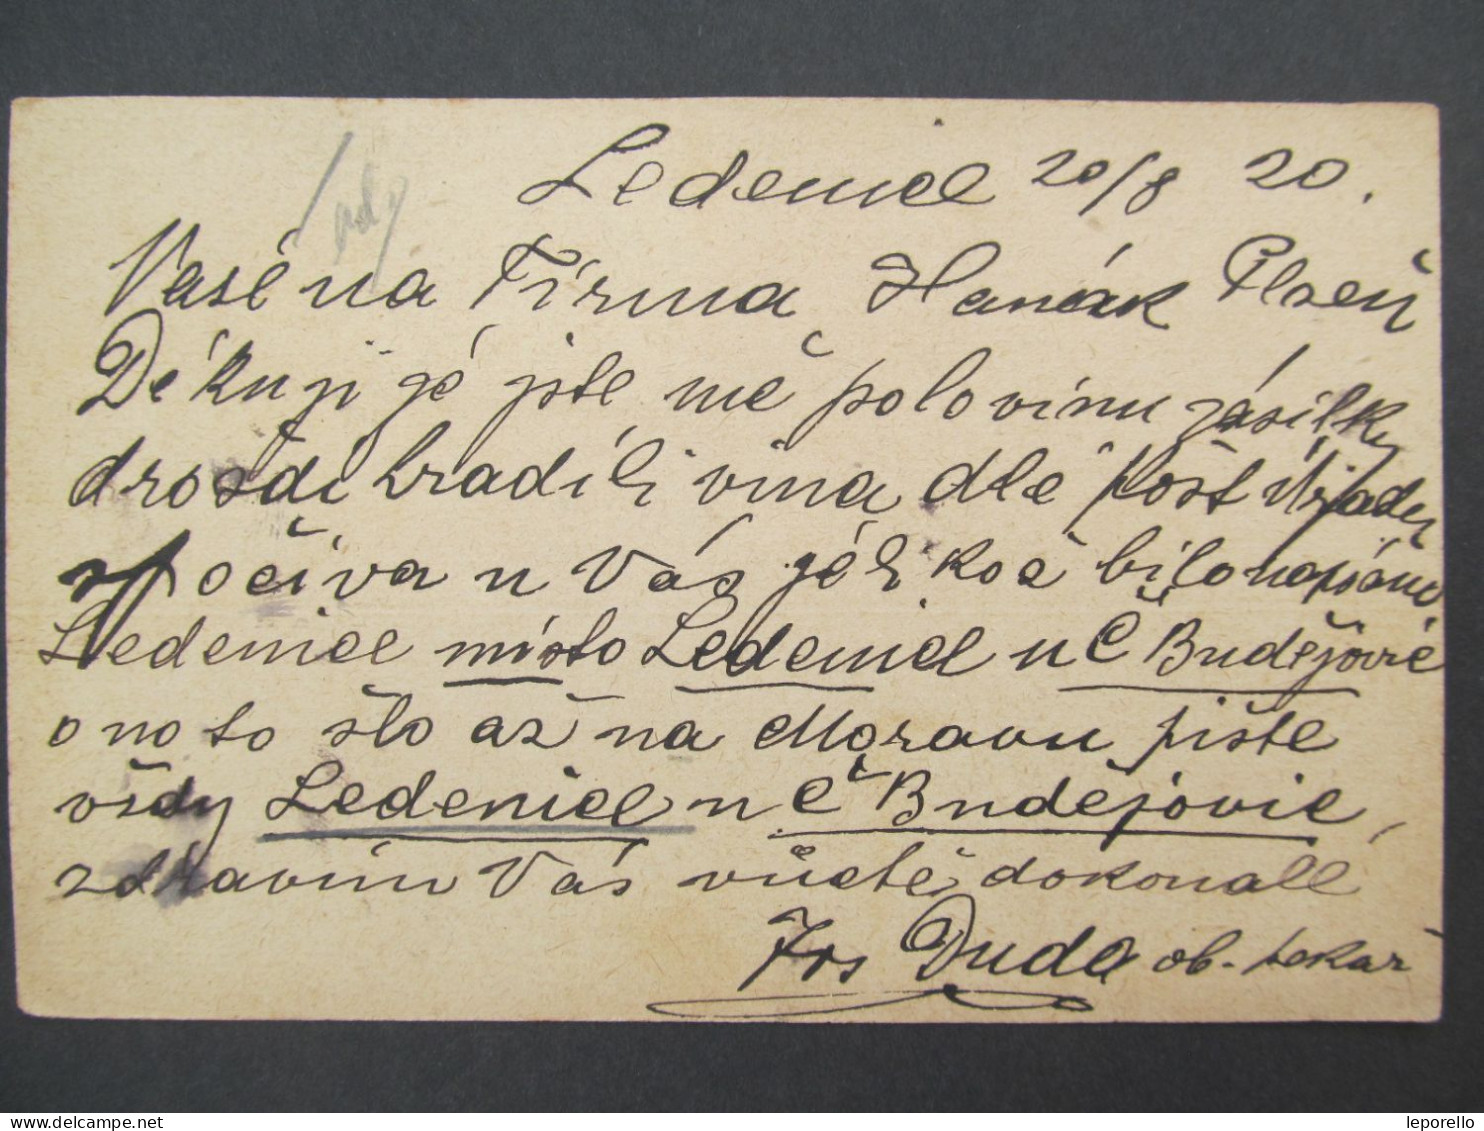 Ledenice 20/8 20.
Vasěna Firma Hanák Plzeň
Děkuji že jste mě polovinu zásilky
drozdí hradili vina dle pošt úřadu
spočíva u Vás jelikož bilo napsáno
Ledenice místo Ledenice u Č Budějovic
ono to šlo až na Moravu pište
vždy Ledenice u Č Budějovic,
zdravím Vás v úctě dokonalé
Frs Duda ob. pekař
leporello